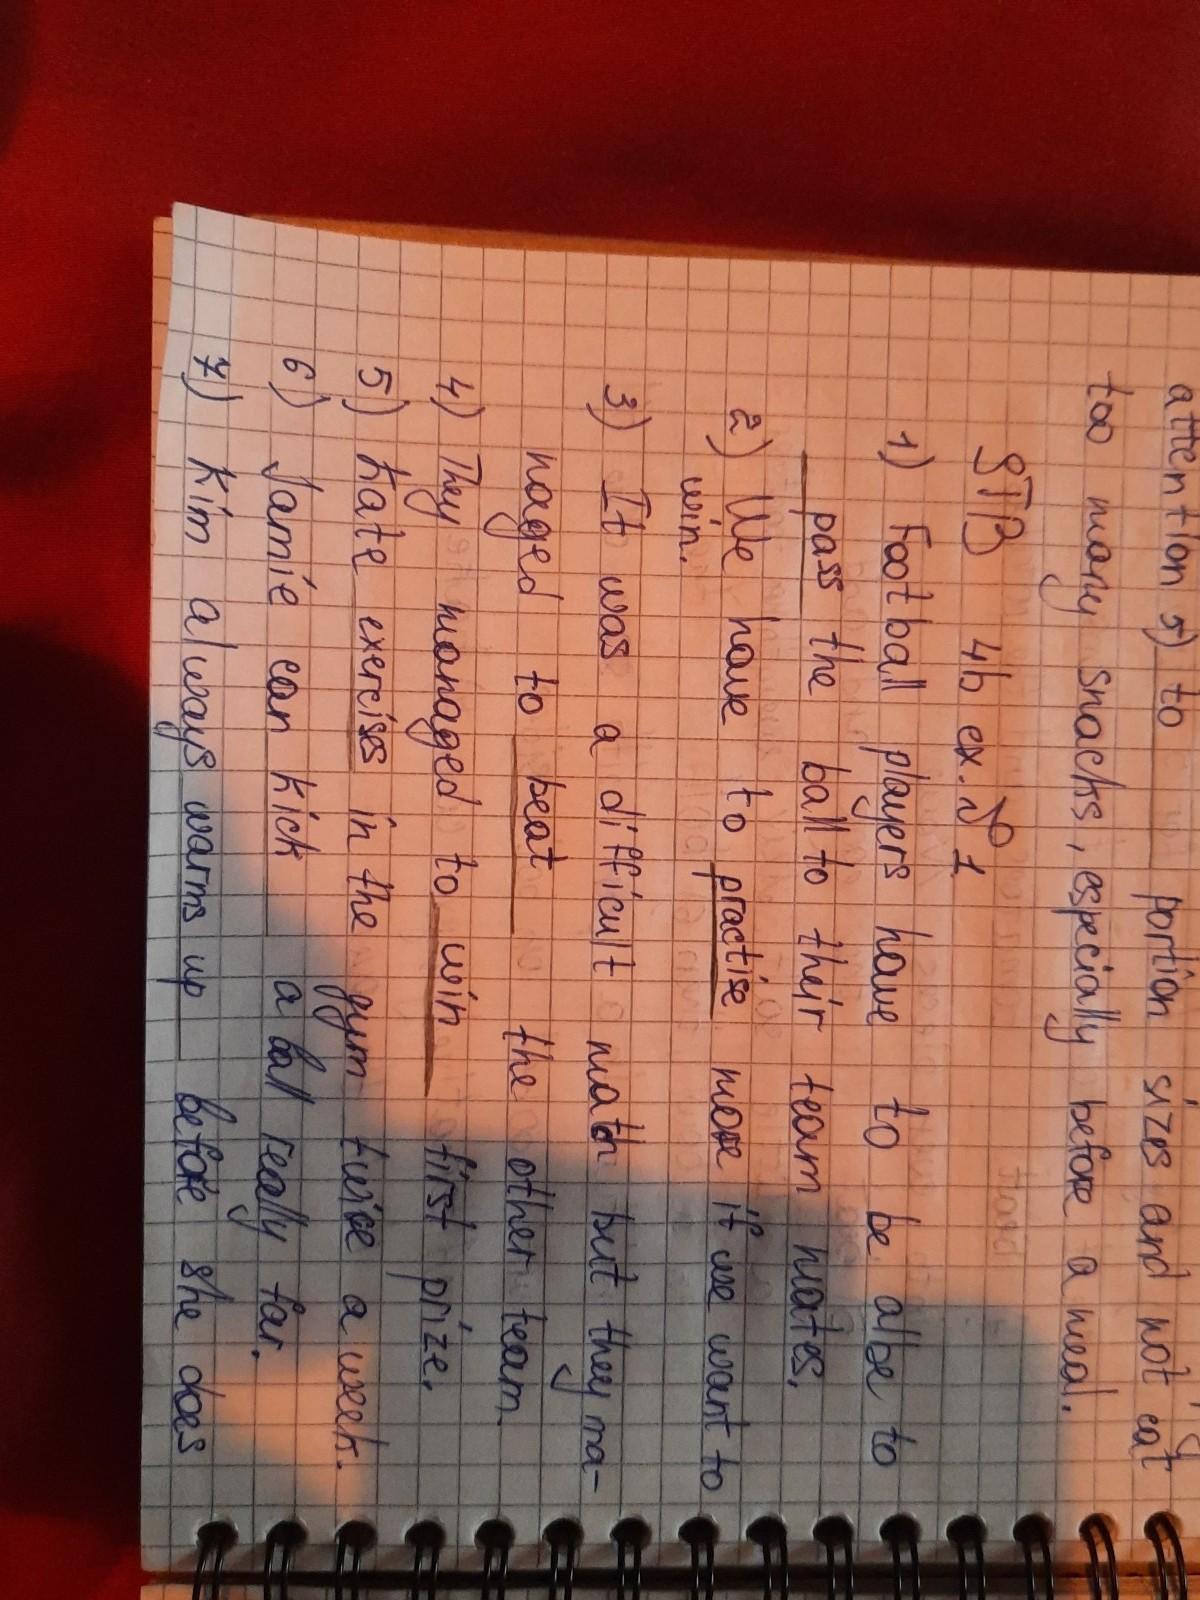 attention 5) to portion sizes and not eat
too many snacks, especially before a meal.
STB 4b ex. № 1
1) Football players have to be albe to
pass the ball to their team mates.
2) We have to practise more if we want to
win.
3) It was a difficult match but they ma-
naged to beat the other team.
4) They managed to win first prize.
5) Kate exercises in the gym twice a week.
6) Jamie can kick a ball really far.
7) Kim always warms up before she does